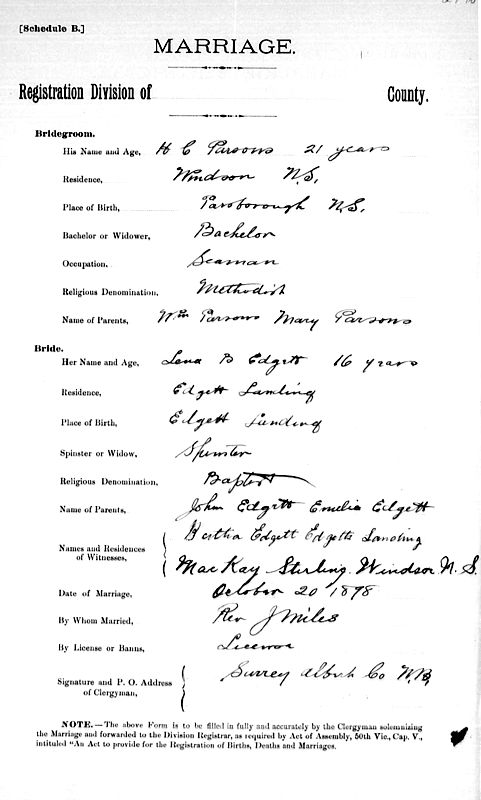 [Schedule B.]
MARRIAGE.
Registration Division of County.
Bridegroom.
His Name and Age, H C Parsons 21 years
Residence, Windson N.S,
Place of Birth, Parsborough N,S.
Bachelor or Widower, Bachelor
Occupation, Seaman
Religious Denomination, Methodist
Name of Parents, Wm Parsons Mary Parsons
Bride.
Her Name and Age, Lena B Edgett 16 years
Residence, Edgett Landing
Place of Birth, Edgett Landing
Spinster or Widow, Spinster
Religious Denomination, Baptist
Name of Parents, John Edgett Emelia Edgett
Names and Residences of Witnesses, Bertha Edgett Edgetts Landing
MacKay Stirling Windsor N.S.
Date of Marriage, October 20 1898
By Whom Married, Rev J Miles
By License or Banns, License
Signature and P. O. Address of Clergyman, Surrey Albert Co N.B,
NOTE.—The above Form is to be filled in fully and accurately by the Clergyman solemnizing
the Marriage and forwarded to the Division Registrar, as required by Act of Assembly, 50th Vic., Cap. V.,
intituled "An Act to provide for the Registration of Births, Deaths and Marriages.